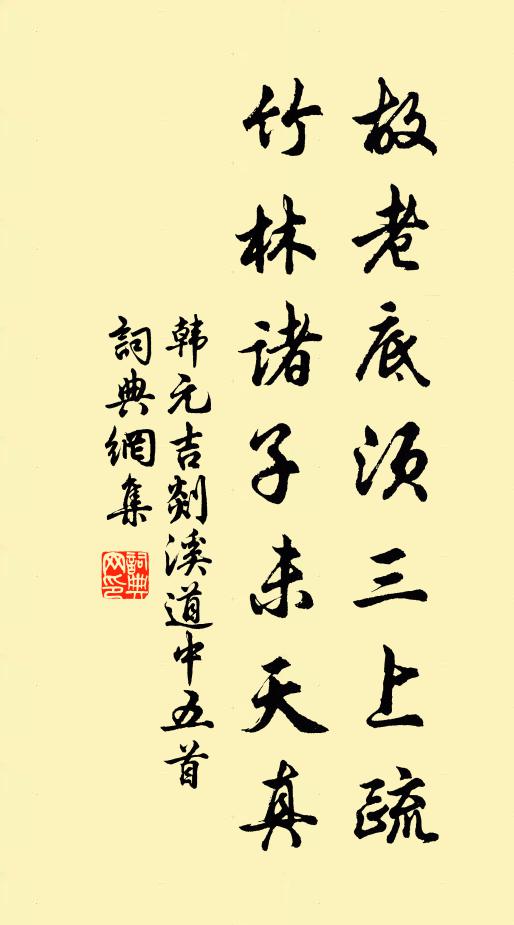 故老底须三上疏
竹林诸子未天真
韩元吉剡溪道中五首
詞典網集
詞典网印